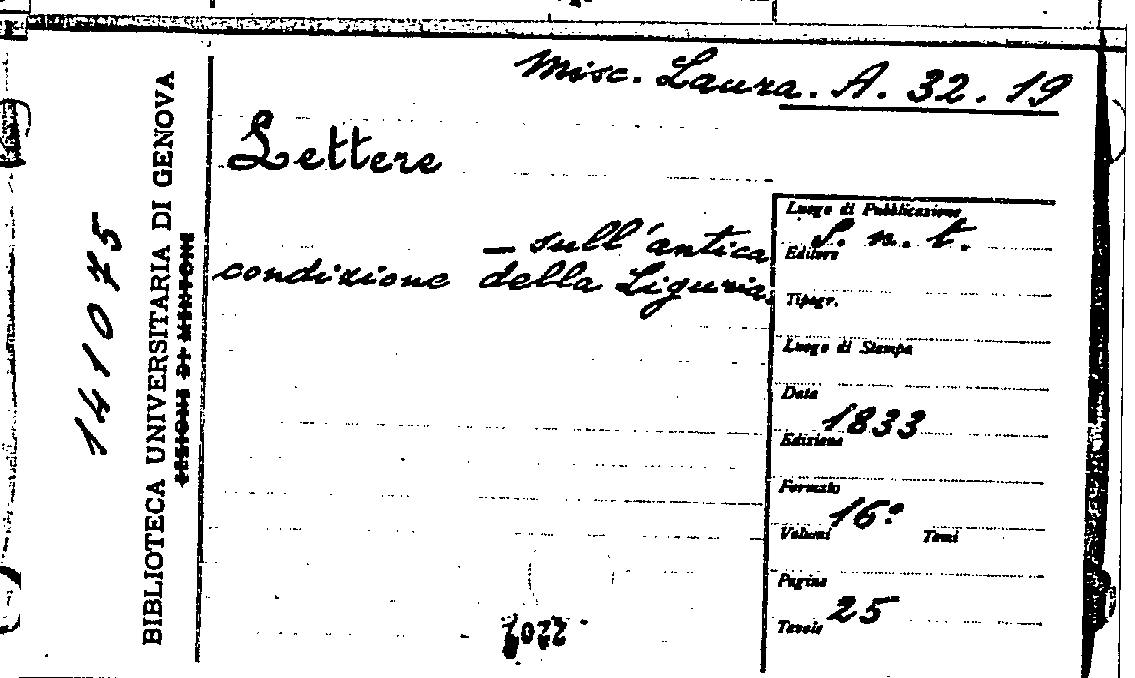 Misc. Laura. A. 32. 19
Lettere
— sull'antica
condizione della Liguria.
Luogo di Pubblicazione
S. n. t.
Editore
Tipogr.
Luogo di Stampa
Data
1833
Edizione
Formato
16º
Volumi Tomi
Pagine
25
Tavole
141075
BIBLIOTECA UNIVERSITARIA DI GENOVA